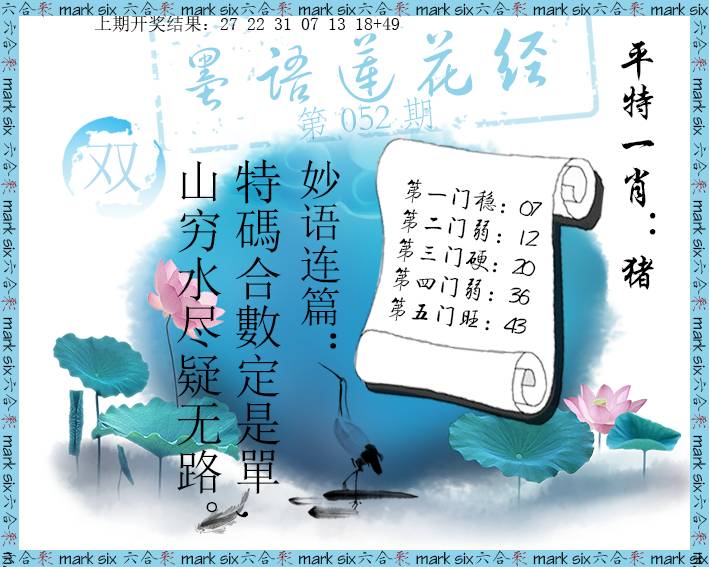 上期开奖结果: 27 22 31 07 13 18+49
墨语莲花经
第 052 期
双
平特一肖：猪
第一门稳：07
第二门弱：12
第三门硬：20
第四门弱：36
第五门旺：43
妙语连篇：
特碼合數定是單、
山穷水尽疑无路。
mark six 六合彩 mark six 六合彩 mark six 六合彩 mark six 六合彩 mark six 六合彩